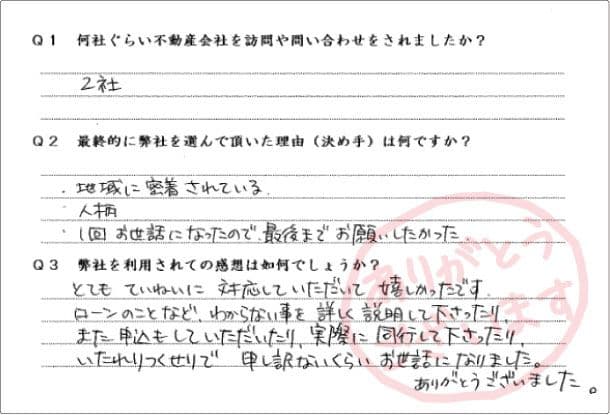 Q1 何社ぐらい不動産会社を訪問や問い合わせをされましたか？
2社
Q2 最終的に弊社を選んで頂いた理由（決め手）は何ですか？
・地域に密着されている
・人柄
・1回お世話になったので、最後までお願いしたかった
Q3 弊社を利用されての感想は如何でしょうか？
とてもていねいに対応していただいて嬉しかったです。
ローンのことなど、わからない事を詳しく説明して下さったり、
また申込もしていただいたり、実際に同行して下さったり、
いたれりつくせりで申し訳ないくらいお世話になりました。
ありがとうございました。
ありがとう
ございます